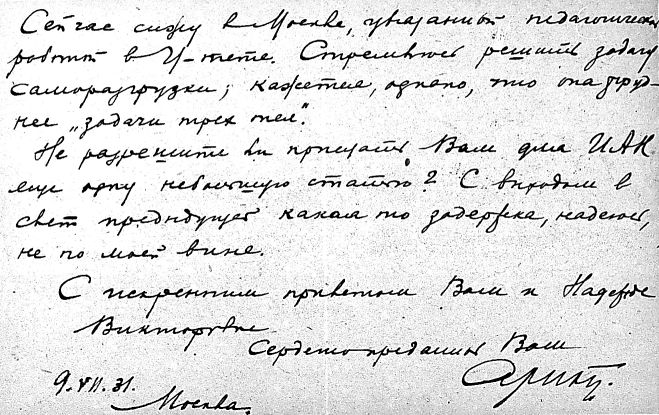 Сейчас сижу в Москве, увязанный педагогической
работой в У-тете. Стремлюсь решить задачу
саморазгрузки; кажется, однако, что она труд-
нее „задачи трех тел“.
Не разрешите ли прислать Вам для ИАН
еще одну небольшую статью? С выходом в
свет предыдущей какая то задержка, надеюсь,
не по моей вине.
С искренним приветом Вам и Надежде
Викторовне
Сердечно преданный Вам
9.VII.31.
Москва.